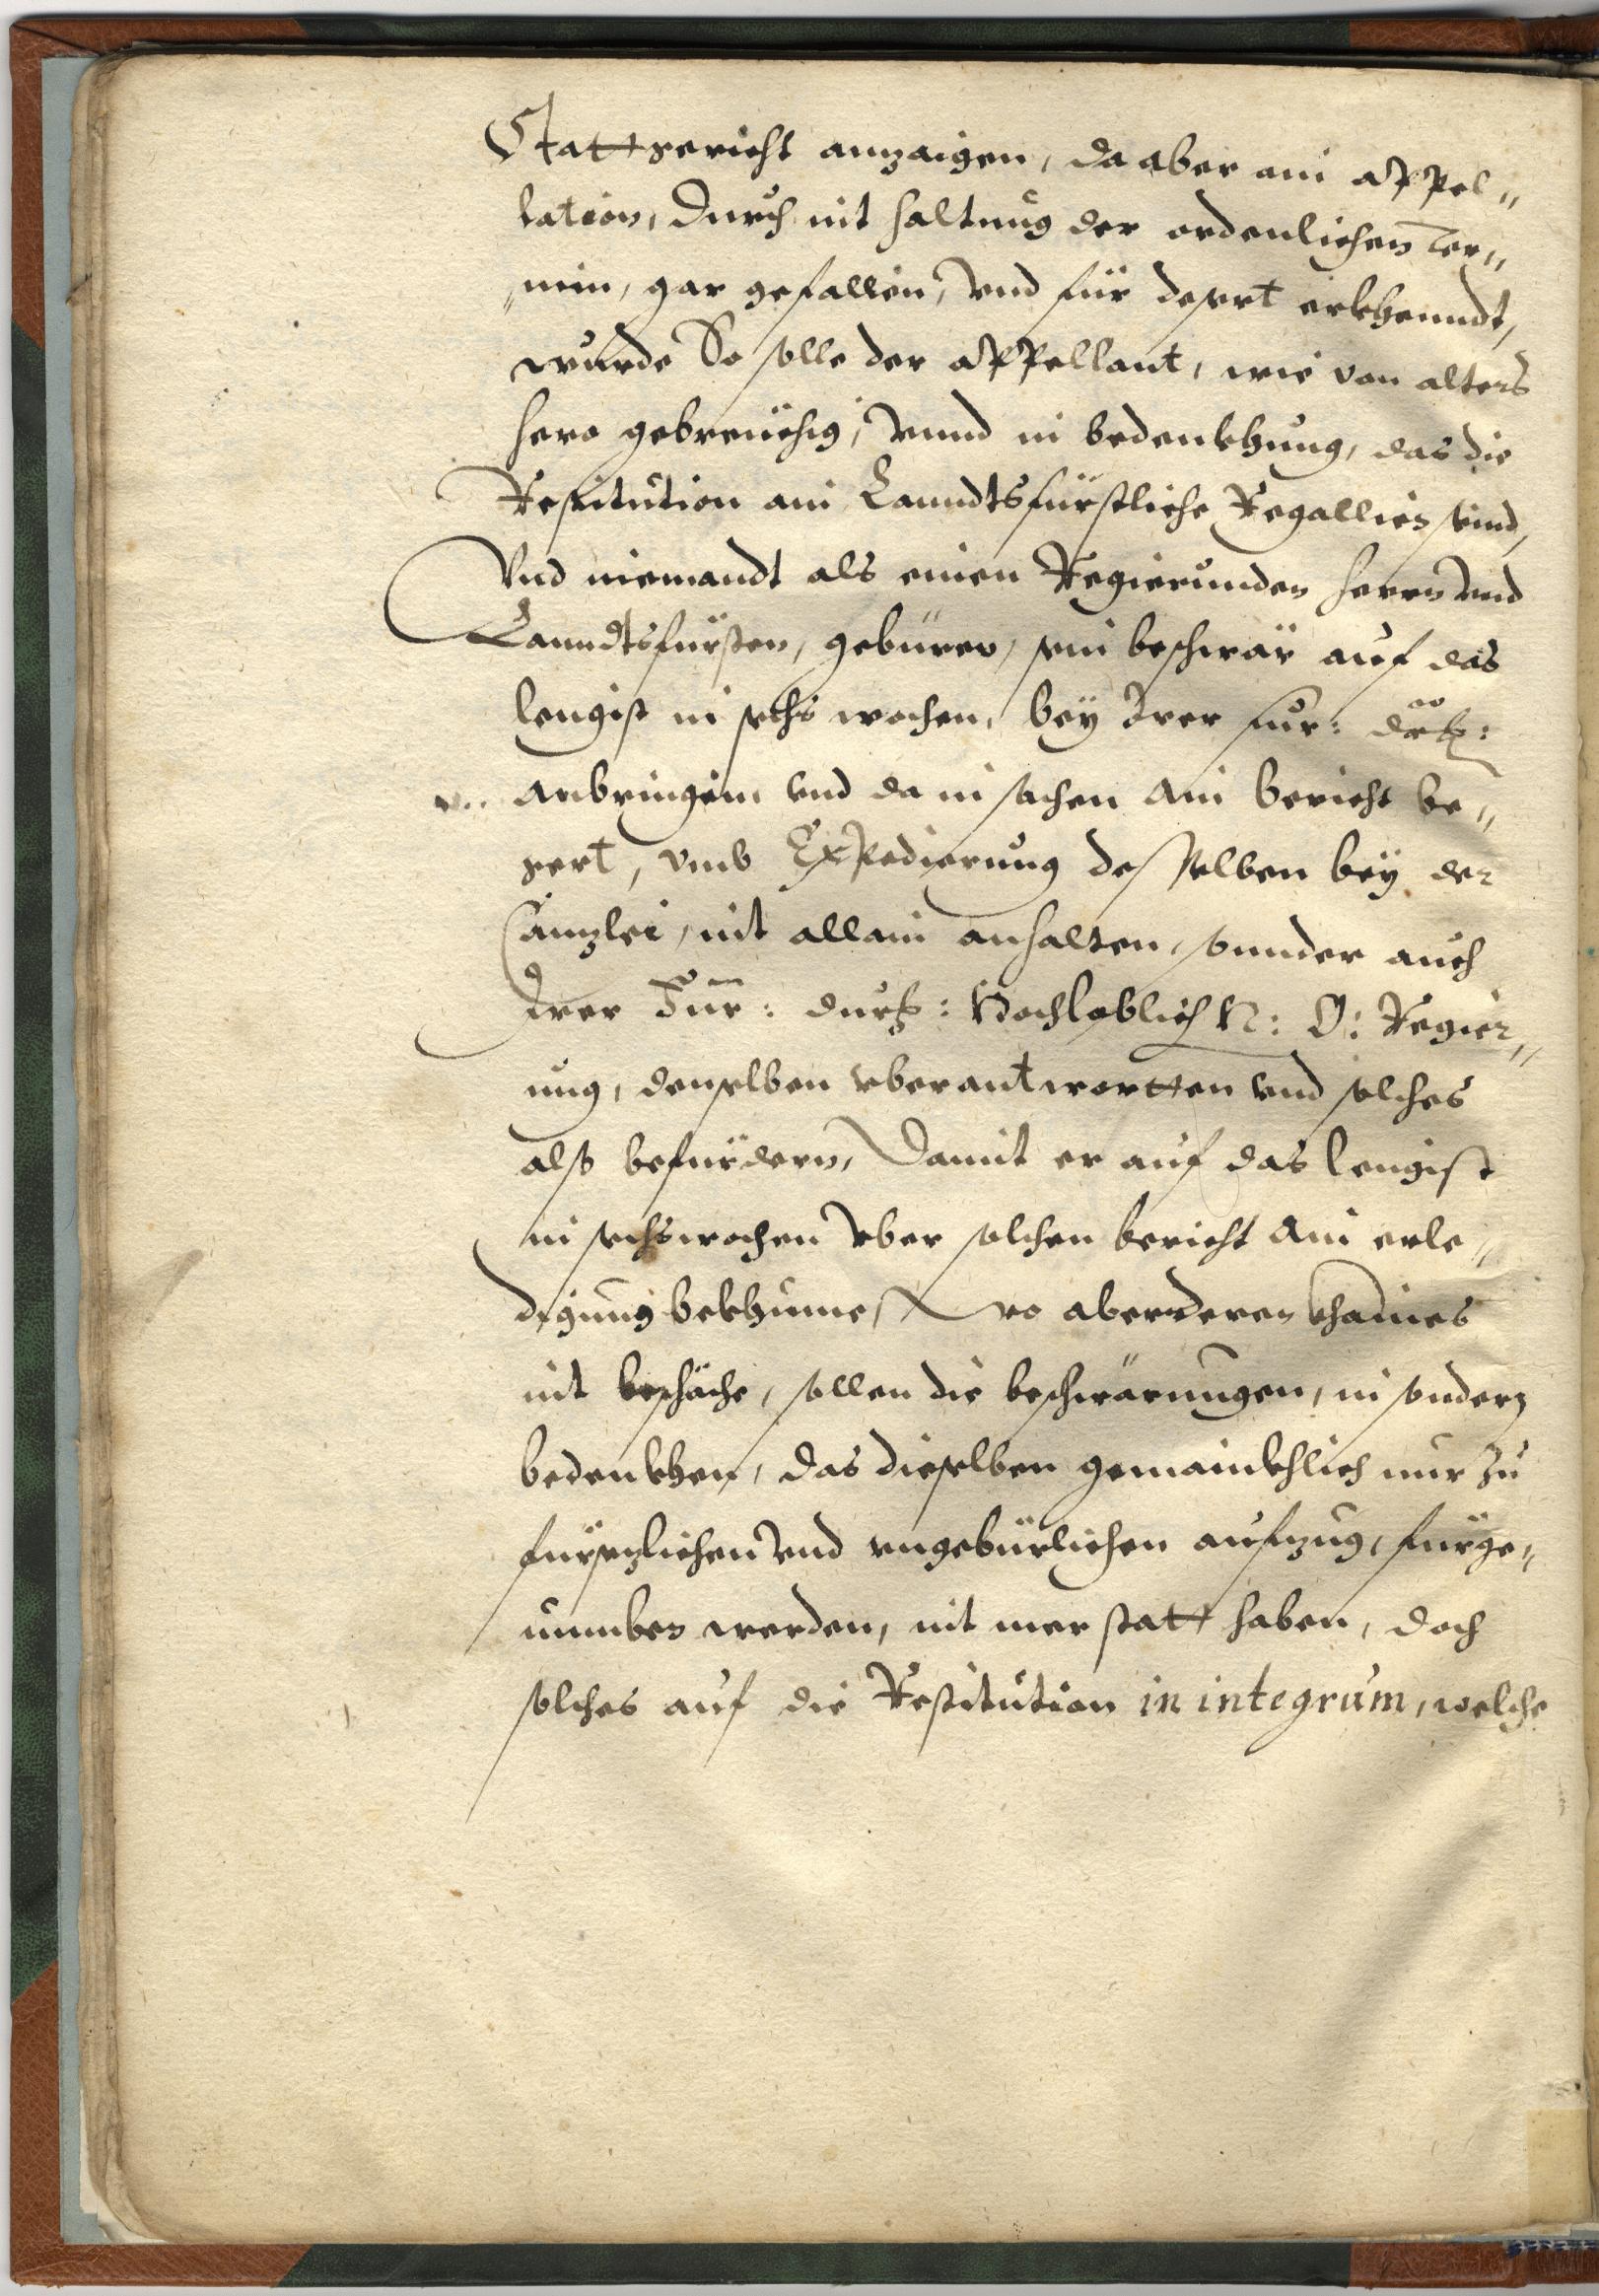 Stattgericht anzaigen, da aber ain appel„
lation, durch nit haltung der ordenlichen Ter„
„min, gar gefallen, vnd für desert erkhenndt,
wurde So solle der appellant, wie von alters
hero gebreüchig, vnnd in bedenkhung, das die
Restitution ain Lanndtsfürstliche Regallien seind,
Vnd niemandt als einen Regierunden herrn vnd
Lanndtsfürsten, gebüren, sein beschwär auf das
lengist in sechs wochen, bey Irer für: drh:
anbringen, vnd da in sachen ain bericht be„
gert, vmb Expedierung desselben bey der
Canzlei, nit allain anhalten, sunder auch
Irer Für: durh: Hochloblich N: O: Regier„
ung, denselben vberantwortten vnd solches
also befürdern, Damit er auf das lengist
in sechs wochen vber solchen bericht ain erle„
digung bekhume, wo aber deren khaines
nit beschäche, sollen die beschwärungen, in sonderm
bedenkhen, das dieselben gemainkhlich nur zu
fürsezlichen vnd vngebürlichen aufzug, fürge„
numben werden, nit mer statt haben, doch
solches auf die Restitution in integrum, welche